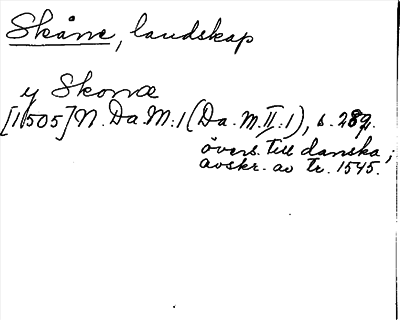 Skåne, landskap
y Skonæ
[1505] N. Da. M:1 (Da. M. II:1), s. 289.
övers. till danska;
avskr. av tr. 1545.